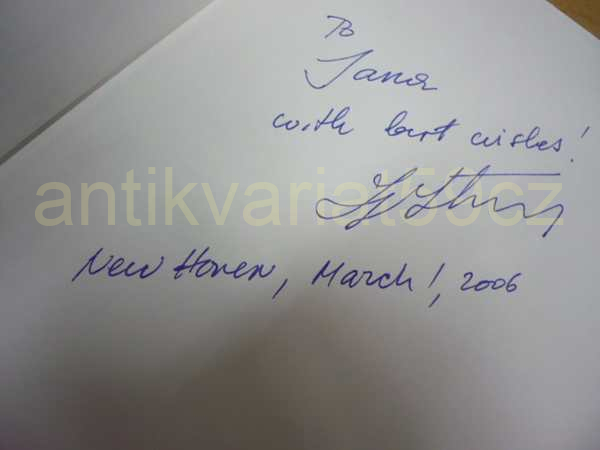 To
Jana
with best wishes!
antikvariat59cz
New Haven, March 1, 2006